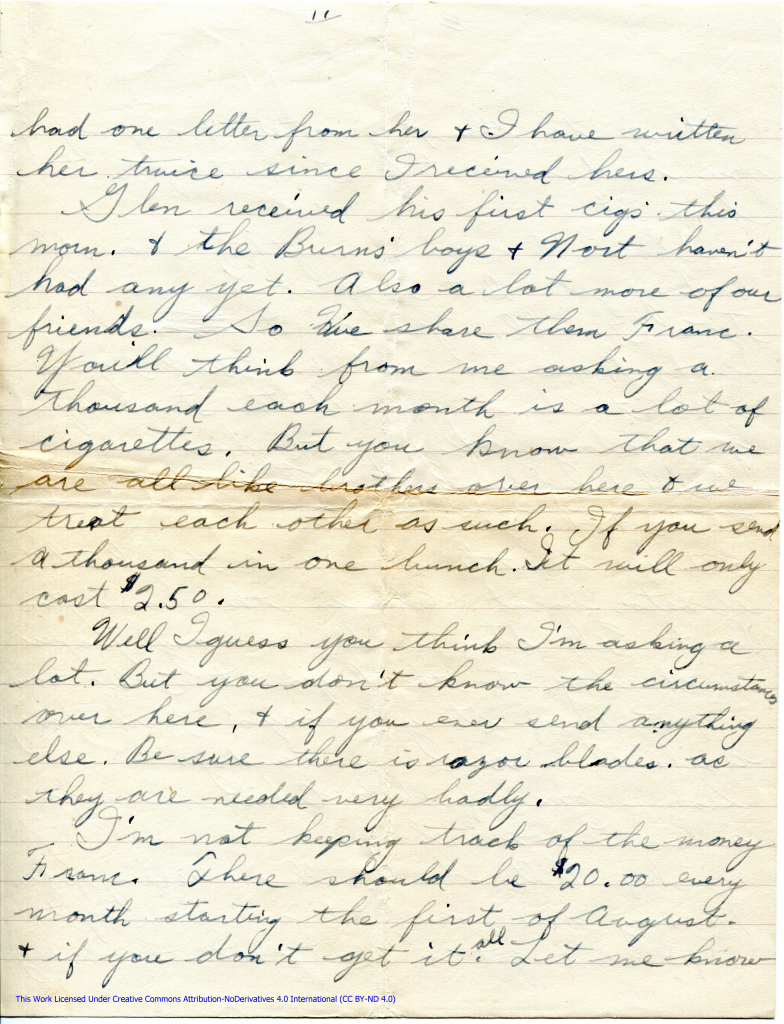 11
had one letter from her + I have written
her twice since I received hers.
Glen received his first cigs this
morn. & the Burns' boys + Mort haven't
had any yet. Also a lot more of our
friends. So we share them Franc.
You'll think from me asking a
thousand each month is a lot of
cigarettes. But you know that we
are all like brothers over here & we
treat each other as such. If you send
a thousand in one bunch. It will only
cost $2.50.
Well I guess you think I'm asking a
lot. But you don't know the circumstances
over here, & if you ever send anything
else. Be sure there is razor blades. as
they are needed very badly.
I'm not keeping track of the money
Franc. There should be $20.00 every
month starting the first of August.
+ if you don't get it all. Let me know
This Work Licensed Under Creative Commons Attribution-NoDerivatives 4.0 International (CC BY-ND 4.0)